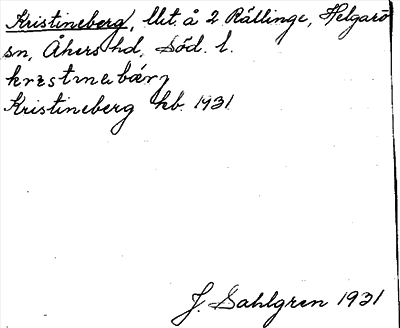 Kristineberg, llt. å 2 Rällinge, Helgarö
sn, Åkers hd, Söd. l.
kristinabärj
Kristineberg kb. 1931
J. Sahlgren 1931